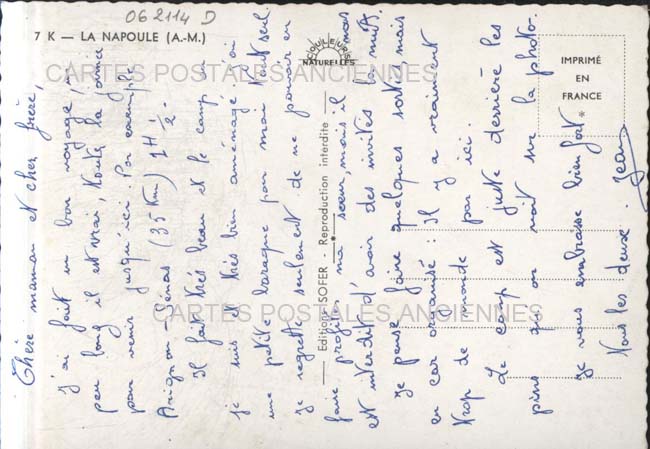 062114 D
7 K — LA NAPOULE (A.-M.)
COULEURS
NATURELLES
IMPRIMÉ
EN
FRANCE
Editions SOFER - Reproduction interdite
CARTES POSTALES ANCIENNES
CARTES POSTALES ANCIENNES
Chère maman et cher frère,
J'ai fait un bon voyage, un
peu long il est vrai, toute la journée
pour venir jusqu'ici. Par exemple
Avignon - Sénas (35 Km) 1H 1/2.
Il fait très beau et le camp où
je suis est très bien aménagé. J'ai
une petite baraque pour moi tout seul.
Je regrette seulement de ne pouvoir en
faire profiter ma sœur, mais il nous
est interdit d'avoir des invités la nuit.
Je pense faire quelques sorties mais
en car organisé : Il y a vraiment
trop de monde par ici.
Le camp est juste derrière les
pins qu'on voit sur la photo.
Je vous embrasse bien fort
tous les deux. Jean